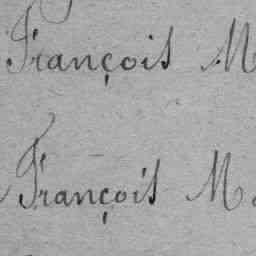 François M
François M